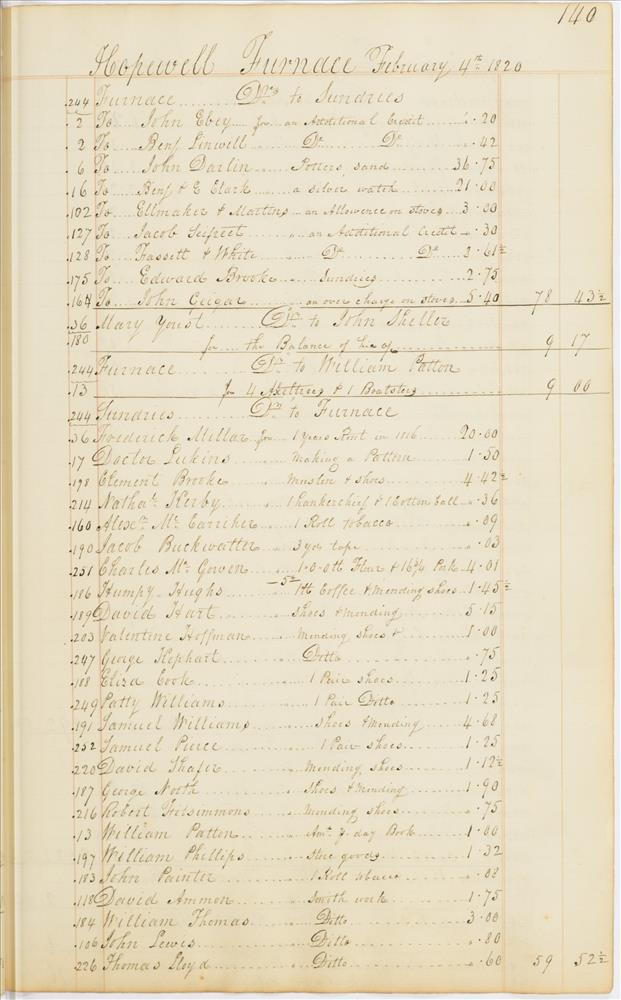 140
Hopewell Furnace February 4th 1820
244 Furnace Drs to Sundries
2 To John Ebey for an Additional Credit .20
2 To Benj Linwell Do Do .42
6 To John Darlin Potters sand 36.75
16 To Benj & E Clark a silver watch 21.00
102 To Ellmaker & Martins an Allowence on stoves 3.00
127 To Jacob Seifreet an Additional Credit .30
128 To Fassett & White Do Do 2.61½
175 To Edward Brooke Sundries 2.75
164 To John Geigar an over charge on stoves 5.40 78 43½
36 Mary Youst Dr to John Sheller
180 for the Balance of her a/c 9 17
244 Furnace Dr to William Patton
13 for 4 Axeltrees & 1 Boatsters 9 00
244 Sundries Drs to Furnace
36 Frederick Millar for 1 years Rent in 1816 20.00
17 Doctor Lukins making a Pattern 1.50
198 Clement Brooke Muslin & shoes 4.42½
214 Nathal Kerby 1 hankerchief & 1 Cotton ball .36
160 Alexr Mc Carriher 1 Roll Tobacco .09
190 Jacob Buckwatter 3 yds tape .03
251 Charles Mc Gowen 1-0-0 lb Flour & 16¾ Pork 4.01
186 Humpy Hughs 52 1 lb Coffee & Mending shoes 1.45½
189 David Hart shoes & mending 5.15
203 Valentine Hoffman Mending shoes & 1.00
247 George Hephart Ditto .75
188 Eliza Cook 1 Pair shoes 1.25
249 Patty Williams 1 Pair Ditto 1.25
191 Samuel Williams shoes & mending 4.68
252 Samuel Pierce 1 Pair shoes 1.25
220 David Shafer Mending shoes 1.12½
187 George North Shoes & Mending 1.90
216 Robert Fitsimmons Mending shoes .75
13 William Patton Amt. p. day Book 1.00
197 William Phillips Store goods 1.32
183 John Painter 1 Roll tobacco .08
118 David Ammon Smith work 1.75
184 William Thomas Ditto 3.00
106 John Lewis Ditto .80
226 Thomas Lloyd Ditto .60 59 52½